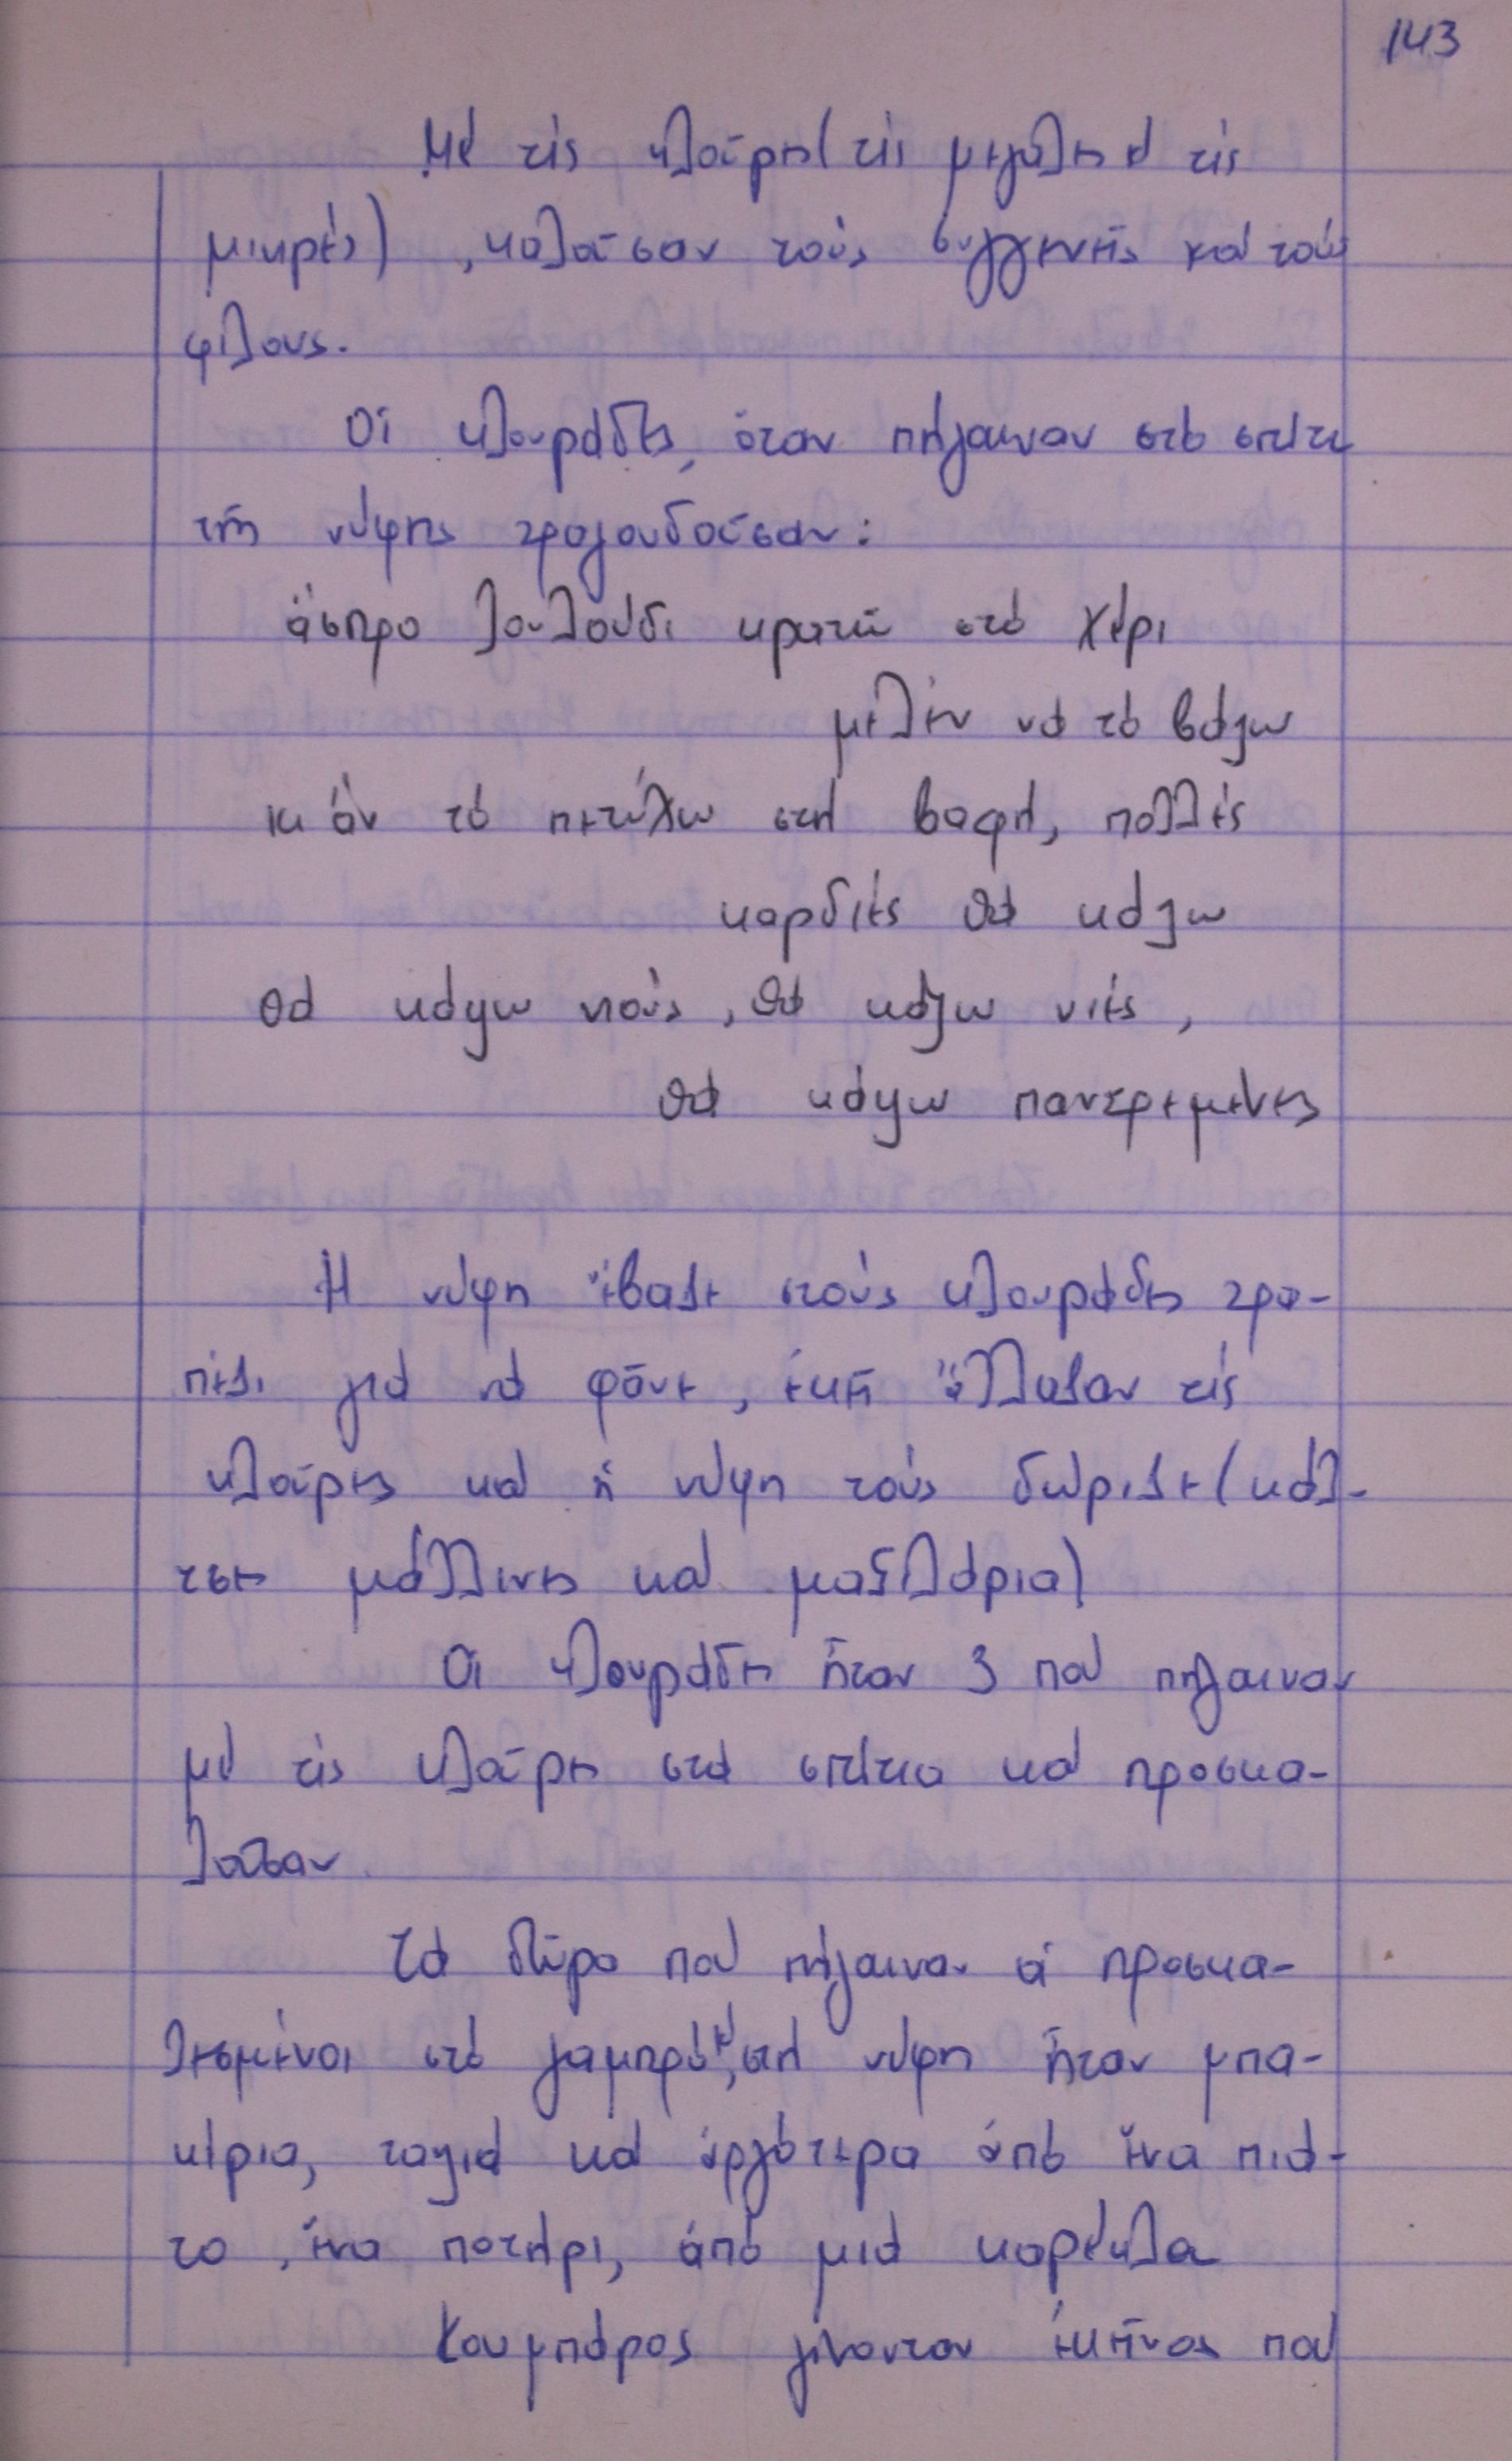 143
Μέ τίς κλοῦρες (τίς μεγάλες κ' τίς
μικρές), καλοῦσαν τούς συγγενεῖς καί τούς
φίλους.
Οἱ κλουράδες, ὅταν πήγαιναν στό σπίτι
τῆς νύφης τραγουδούσαν:
ἄσπρο λουλούδι κρατῶ στό χέρι
μελέν νά τό βάψω
κι ἄν τό πετύχω στή βαφή, πολλές
καρδιές θά κάψω
θά κάψω νιούς, θά κάψω νιές,
θά κάψω παντρεμένες
Ἡ νύφη ἔβαζε στούς κλουράδες τρα-
πέζι γιά νά φᾶνε, ἐκεῖ ἄλλαζαν τίς
κλοῦρες καί ἡ νύφη τούς δώριζε (κάλ-
τσες μάλλινες καί μαξιλάρια)
Οἱ κλουράδες ἦταν 3 πού πήγαιναν
μέ τίς κλοῦρες στά σπίτια καί προσκα-
λοῦσαν
Τά δῶρα πού πήγαιναν οἱ προσκα-
λεσμένοι στό γαμπρό κ' στή νύφη ἦταν μπα-
κίρια, ταψιά καί ἀργότερα ἀπό ἕνα πιά-
το, ἕνα ποτήρι, ἀπό μιά καρέκλα
Κουμπάρος γίνονταν ἐκεῖνος πού